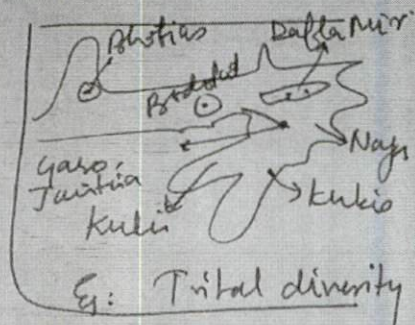 Bhotias
Dafla Miri
Naga
Garo,
Jaintia
Kukis
Kukis
Eg: Tribal diversity